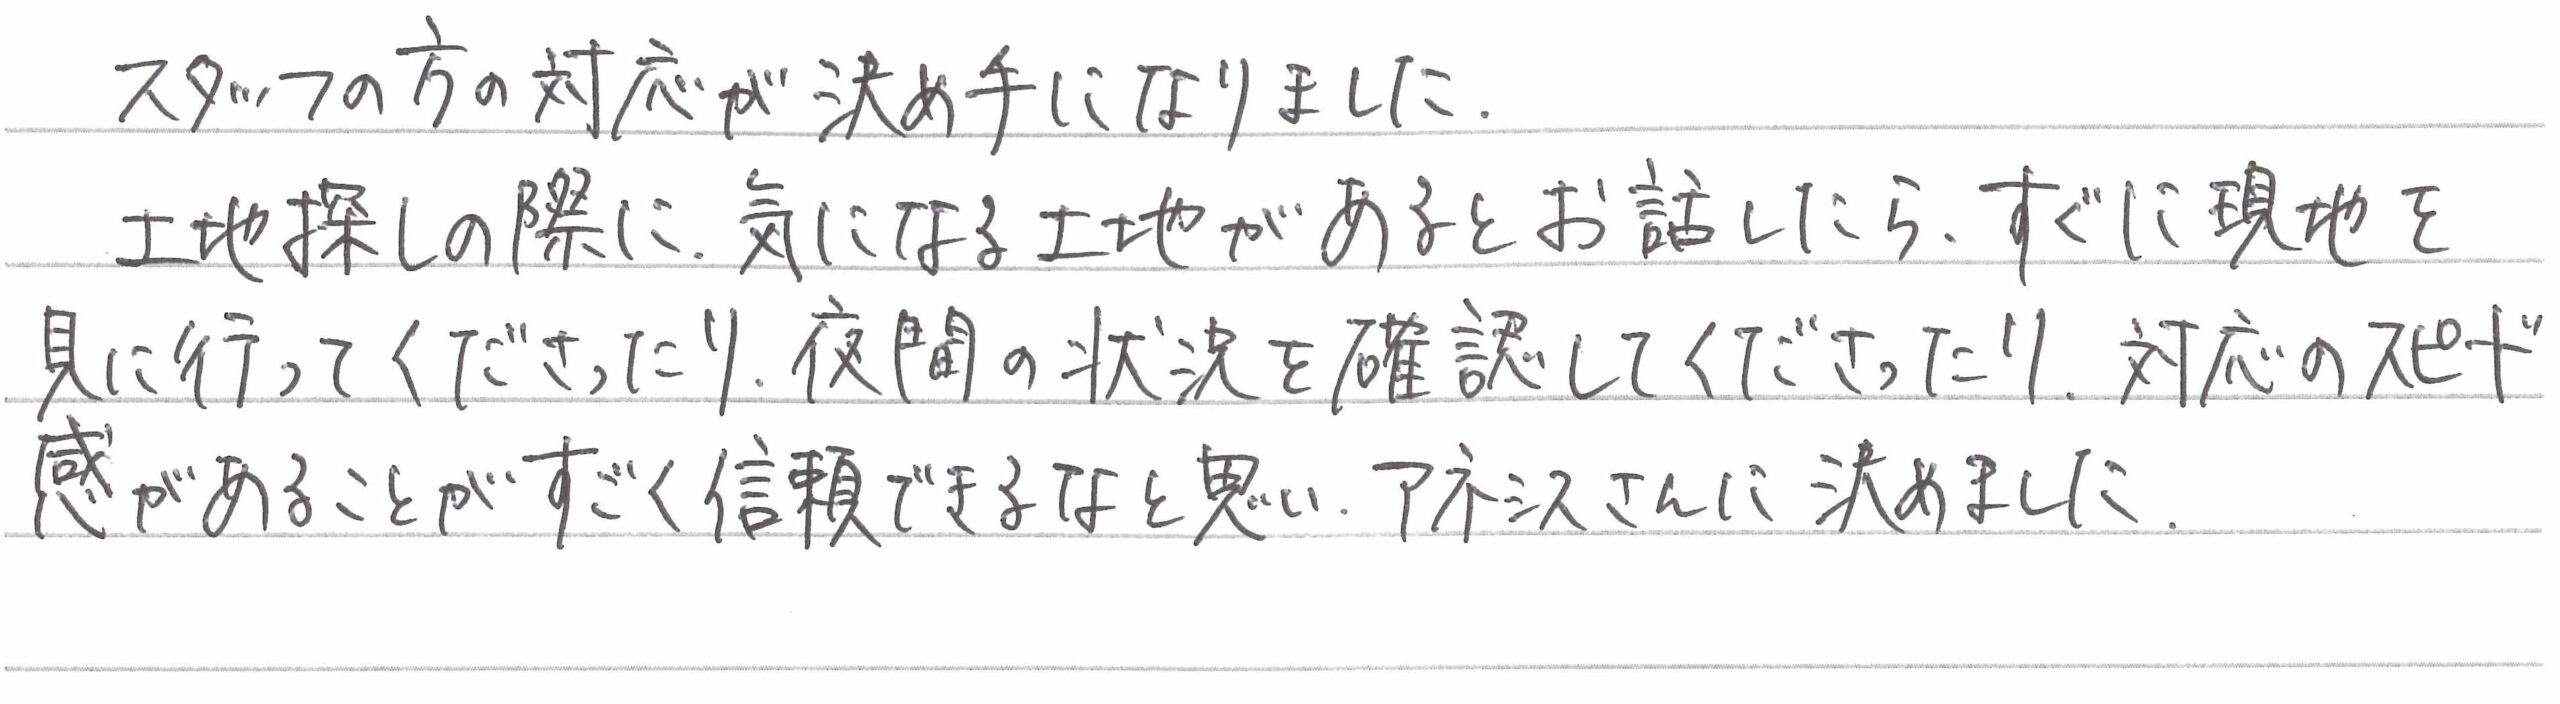 スタッフの方の対応が決め手になりました.
土地探しの際に.気になる土地があるとお話したら、すぐに現地を
見に行ってくださったり.夜間の状況を確認してくださったり.対応のスピード
感があることがすごく信頼できるなと思い.アネシスさんに決めました.